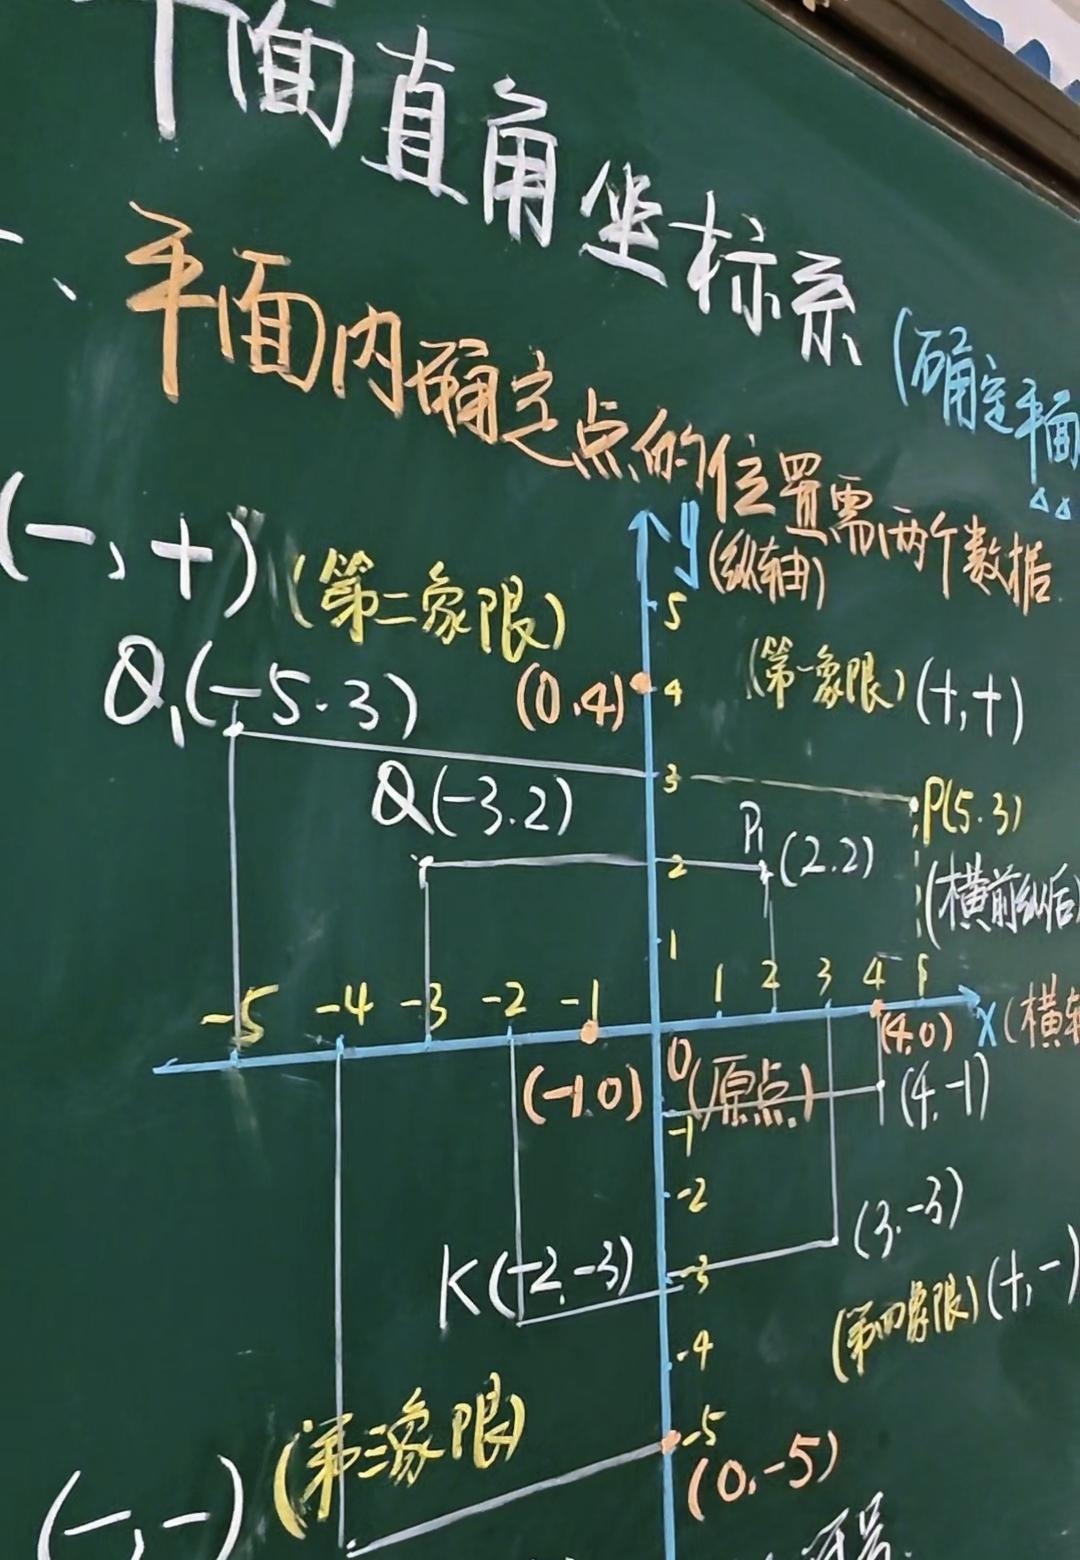 平面直角坐标系
一、平面内确定点的位置需两个数据
(确定平面
(-,+)
(第二象限)
y
(纵轴)
5
Q₁(-5.3)
(0.4)
4
(第一象限)(+,+)
3
P(5.3)
Q(-3.2)
2
P₁(2.2)
(横前纵后)
1
-5 -4 -3 -2 -1
1 2 3 4 5
x(横轴
(-1.0)
0(原点)
(4.0)
-1
(4.-1)
-2
(3.-3)
K(-2.-3)
-3
(第四象限)(+,-)
-4
(第三象限)
-5
(0,-5)
(-,-)